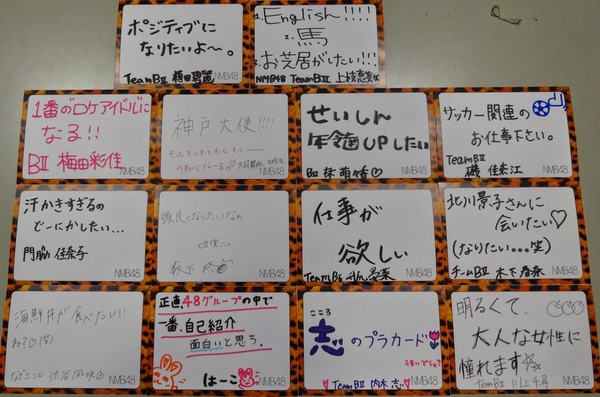 ポジティブに
なりたいよ〜。
TeamBⅡ 梅田碧麗
NMB48
1. English!!!!
2. 馬
3. お芝居がしたい!!!!
NMB48 TeamBⅡ 上枝恵美加
1番のロケアイドルに
なる!!
BⅡ 梅田彩佳
NMB48
神戸大使!!!!
もっともっともっともっともっと
かわいくなーる♡
NMB48
せいしん
年齢UPしたい
BⅡ 林 萌々香♡
NMB48
サッカー関連の
お仕事下さい。
TeamBⅡ
磯 佳奈江
NMB48
汗かきすぎるの
どーにかしたい...
門脇 佳奈子
NMB48
頭良くなりたいなぁ
切実に
NMB48
仕事が
欲しい
TeamBⅡ
NMB48
北川景子さんに
会いたい♡
(なりたい...笑)
チームBⅡ 木下春奈
NMB48
海鮮丼が食べたい!!
ね?♡(笑)
なぎこと 渋谷凪咲
NMB48
正直、48グループの中で
一番、自己紹介
面白いと思う。
はーこ
NMB48
こころ
志のプラカード
うまいでしょ?
TeamBⅡ 内木 志
NMB48
明るくて、
大人な女性に
憧れます
TeamBⅡ 川上千尋
NMB48